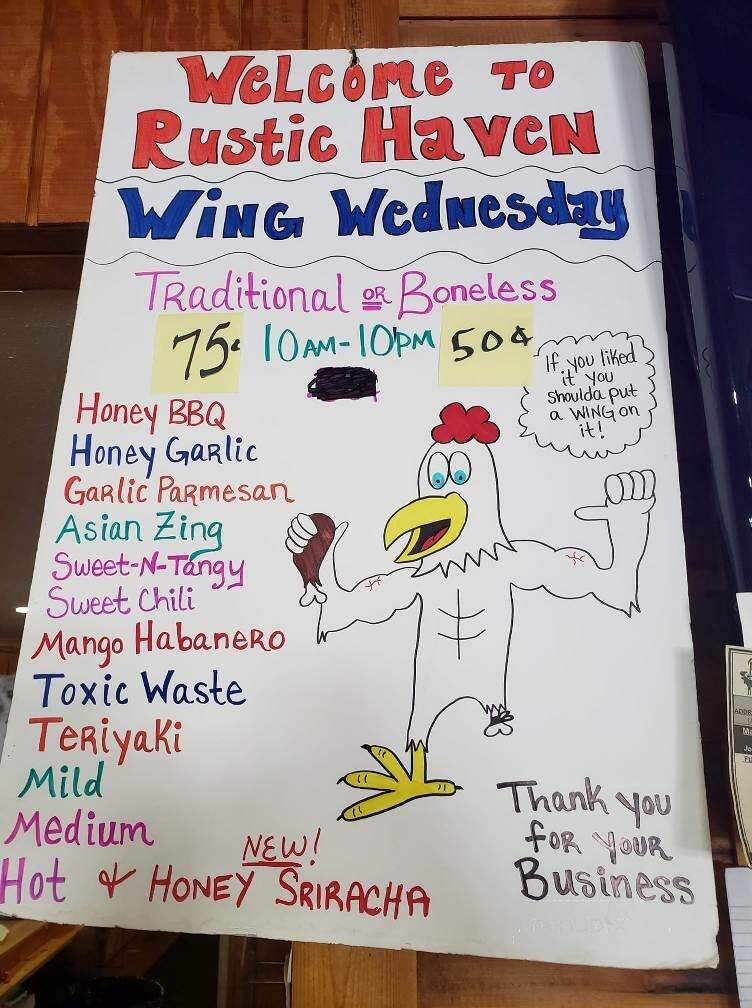 Welcome to
Rustic Haven
Wing Wednesday
Traditional or Boneless
75¢ 10am-10pm 50¢
If you liked
it you
shoulda put
a WING on
it!
Honey BBQ
Honey Garlic
Garlic Parmesan
Asian Zing
Sweet-N-Tangy
Sweet Chili
Mango Habanero
Toxic Waste
Teriyaki
Mild
Medium
NEW!
Hot & Honey Sriracha
Thank you
for your
Business